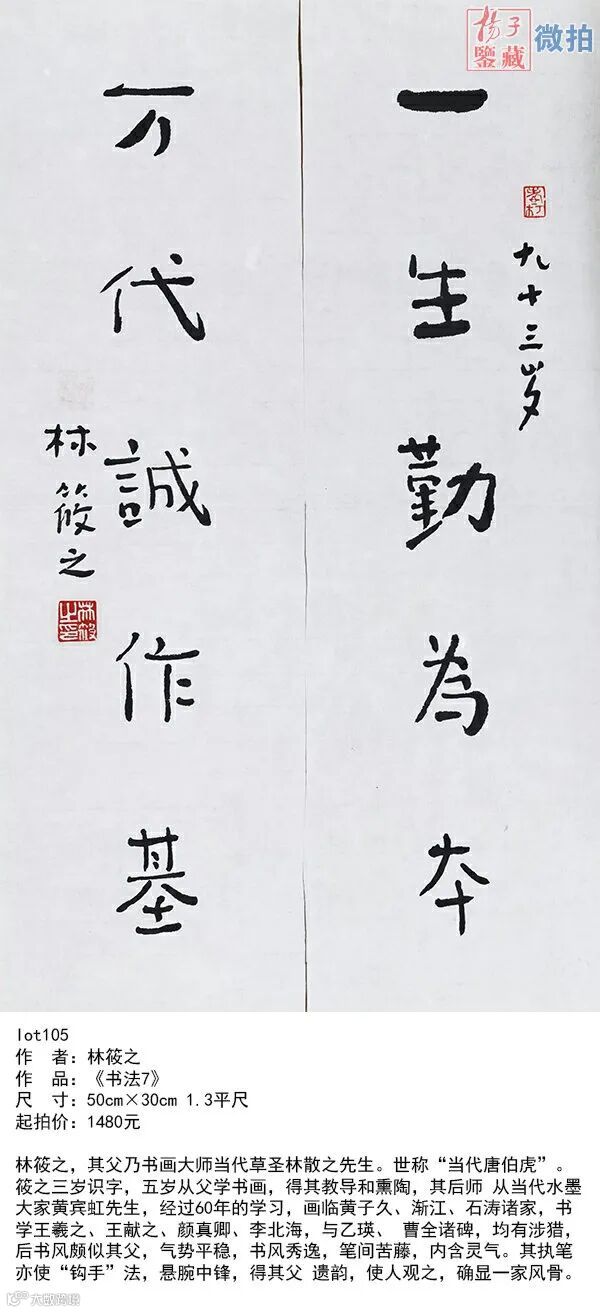 杨子
鉴藏
微拍
九十三岁
一生勤为本
万代誠作基
林筱之
林筱之印
lot105
作 者：林筱之
作 品：《书法7》
尺 寸：50cm×30cm 1.3平尺
起拍价：1480元
林筱之，其父乃书画大师当代草圣林散之先生。世称“当代唐伯虎”。
筱之三岁识字，五岁从父学书画，得其教导和熏陶，其后师 从当代水墨
大家黄宾虹先生，经过60年的学习，画临黄子久、渐江、石涛诸家，书
学王羲之、王献之、颜真卿、李北海，与乙瑛、 曹全诸碑，均有涉猎，
后书风颇似其父，气势平稳，书风秀逸，笔间苦藤，内含灵气。其执笔
亦使“钩手”法，悬腕中锋，得其父 遗韵，使人观之，确显一家风骨。
大数跨境